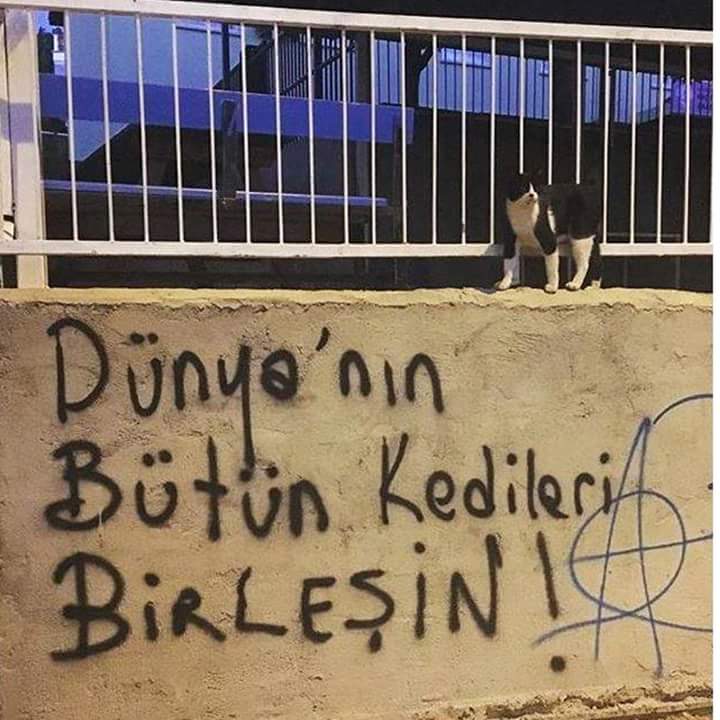 Dünya'nın
Bütün Kedileri
BiRLEŞİN'!